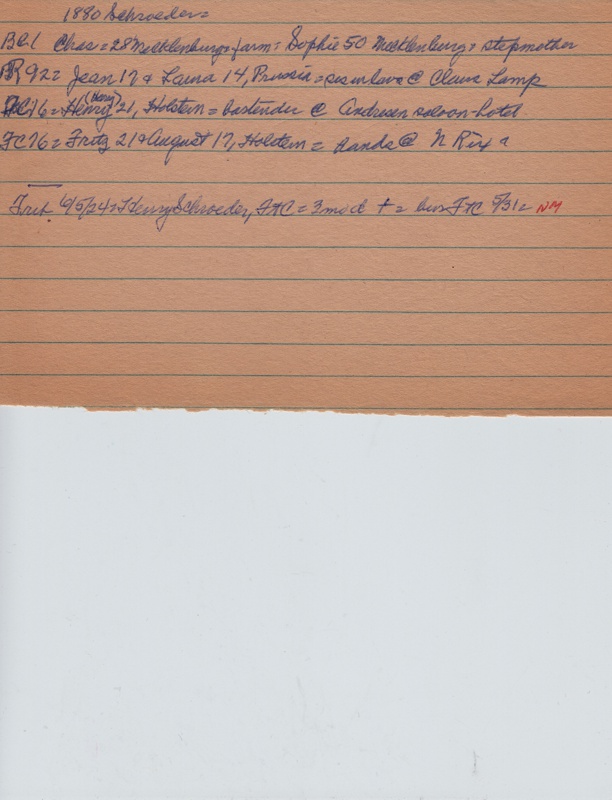 1880 Schroeder=
Bel Chas = 28 Mecklenburg = farm: Sophie 50 Mecklenburg = stepmother
92= Jean 17 & Laura 14, Prussia = sisinlaws @ Claus Lamp
16= Henry (Harry) 21, Holstein = bartender @ Andresen saloon-hotel
FC76= Fritz 21 & August 17, Holstein = hands @ N Rix
6/5/24= Henry Schroeder, = 3 mo d + = bur 5/31= NM